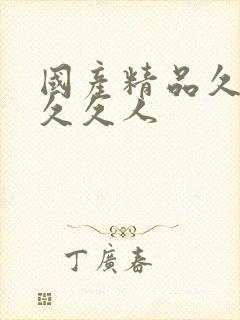 國產精品久
久久人
丁廣春